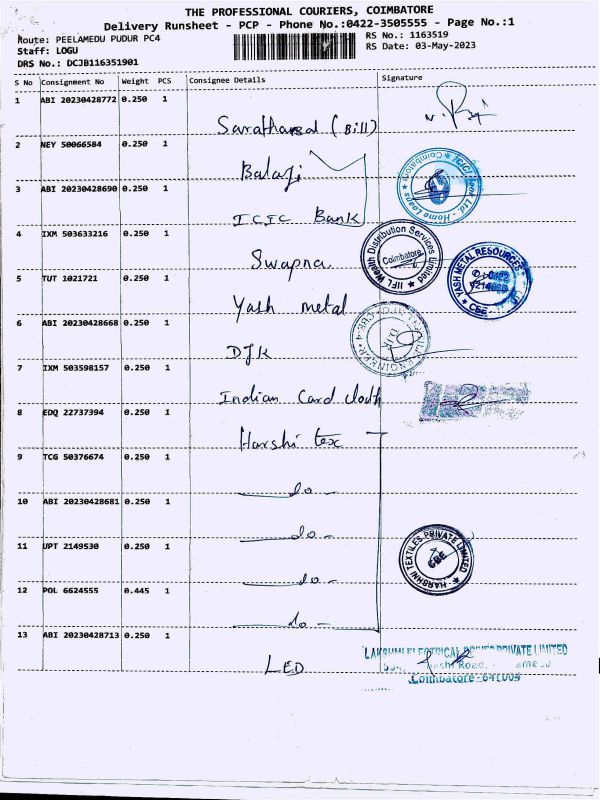 THE PROFESSIONAL COURIERS, COIMBATORE
Delivery Runsheet - PCP - Phone No.:0422-3505555 - Page No.:1
Route: PEELAMEDU PUDUR PC4
RS No.: 1163519
Staff: LOGU
RS Date: 03-May-2023
DRS No.: DCJB116351901
S No Consignment No Weight PCS Consignee Details Signature
1 ABI 20230428772 0.250 1
(Bill)
2 NEY 50066584 0.250 1
Balaji
3 ABI 20230428690 0.250 1
ICIC Bank
ICICI Bank Ltd - Home Loans * Coimbatore *
4 IXM 503633216 0.250 1
Swapna
IIFL Wealth Distribution Services Limited
Coimbatore
5 TUT 1021721 0.250 1
Yash metal
YASH METAL RESOURCES
* CBE *
6 ABI 20230428668 0.250 1
DJK
7 IXM 503598157 0.250 1
Indian Card cloth
8 EDQ 22737394 0.250 1
Harshi tex
9 TCG 50376674 0.250 1
do
10 ABI 20230428681 0.250 1
do
11 UPT 2149530 0.250 1
do
HARSHNI TEXTILES PRIVATE LIMITED
CBE
12 POL 6624555 0.445 1
do
13 ABI 20230428713 0.250 1
LED
LAKSHMI ELECTRICAL DRIVES PRIVATE LIMITED
Road,
Coimbatore-641004